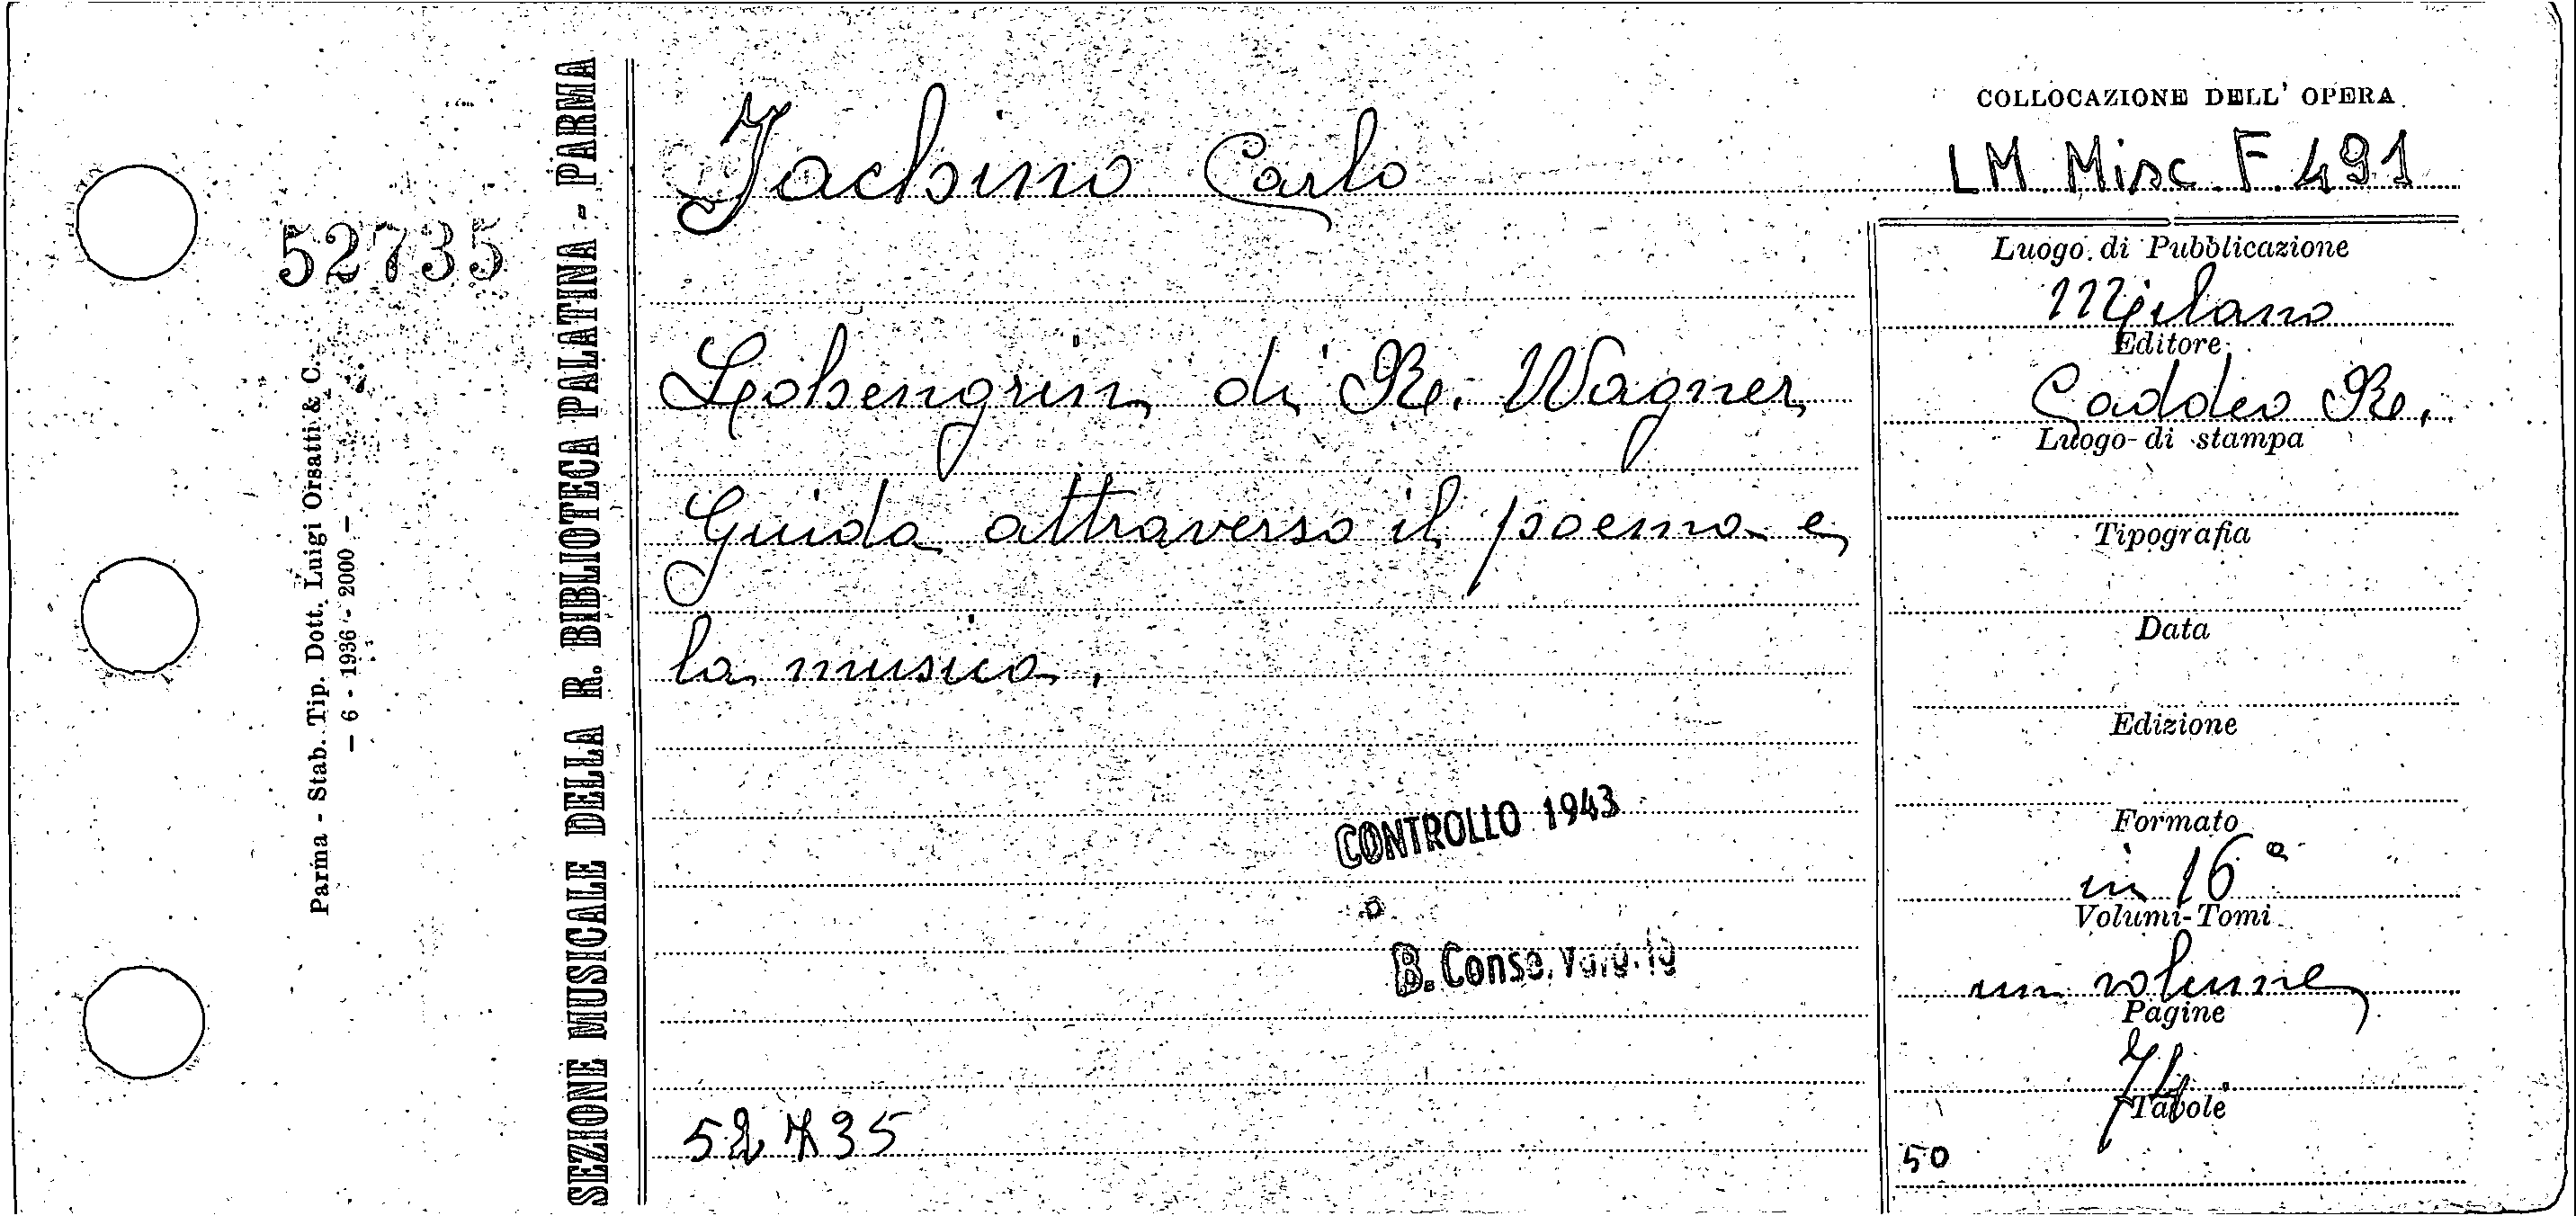 52735
Parma - Stab. Tip. Dott. Luigi Orsatti & C.
— 6 - 1936 - 2000 —
SEZIONE MUSICALE DELLA R. BIBLIOTECA PALATINA - PARMA
Jachino Carlo
Lohengrin di R. Wagner
Guida attraverso il poema e
la musica.
CONTROLLO 1943
B. Conse
52735
COLLOCAZIONE DELL' OPERA
LM Misc. F. 491
Luogo di Pubblicazione
Milano
Editore
Caddeo R.
Luogo di stampa
Tipografia
Data
Edizione
Formato
in 16°
Volumi-Tomi
un volume
Pagine
Tavole
50